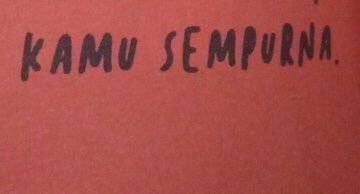 KAMU SEMPURNA.